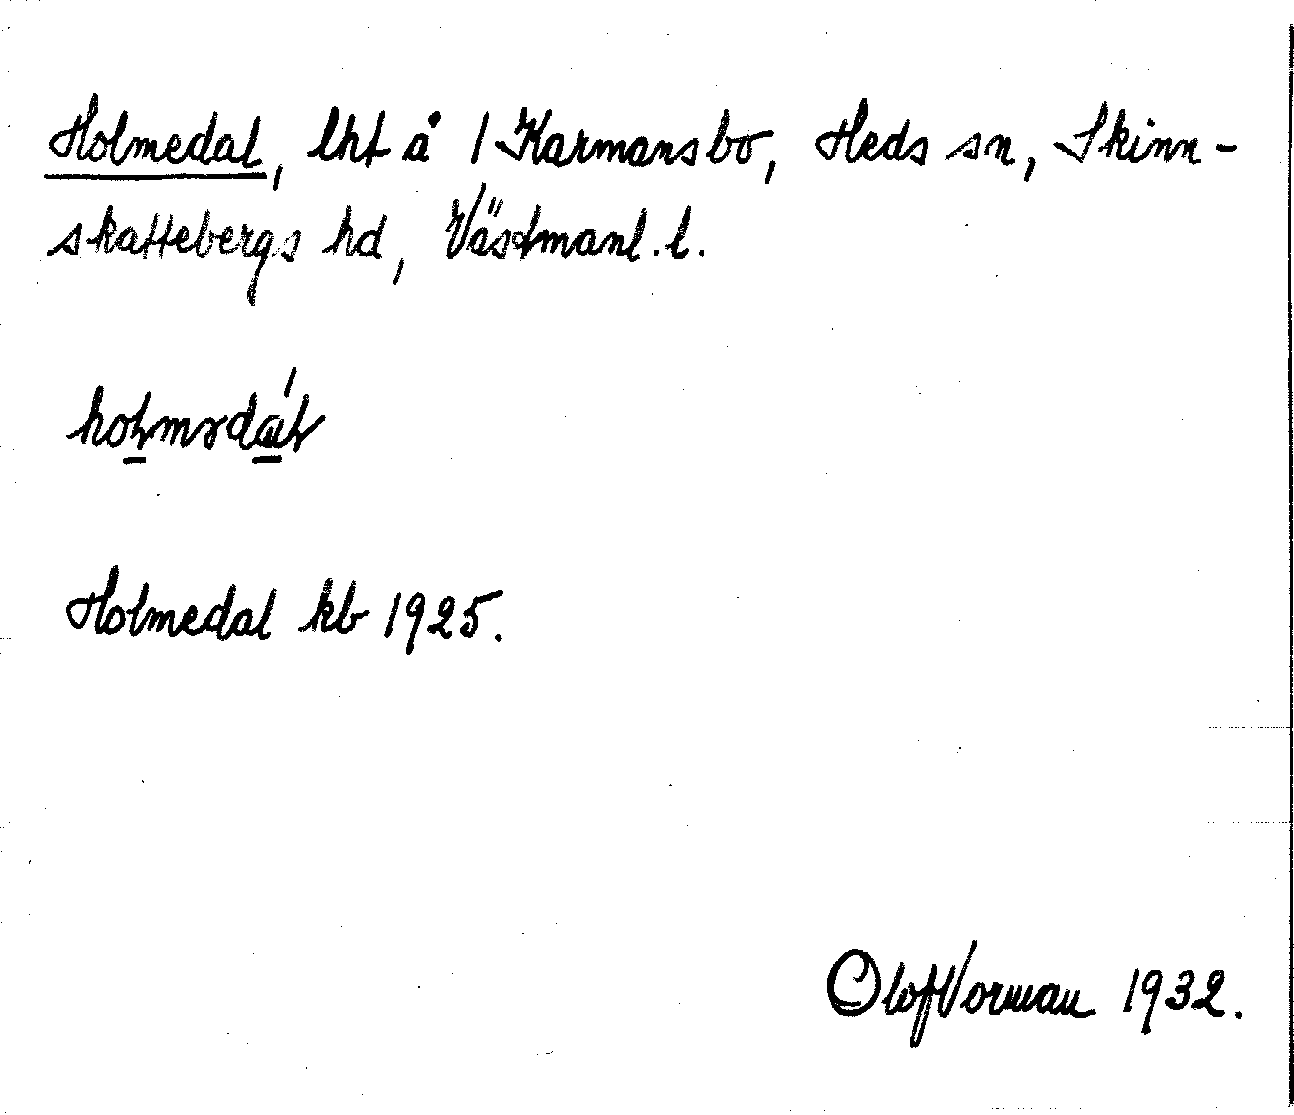 Holmedal, lht å 1 Karmansbo, Heds sn, Skinn-
skattebergs hd, Västmanl. l.
Holmedal kb 1925.
Olof Vorman 1932.